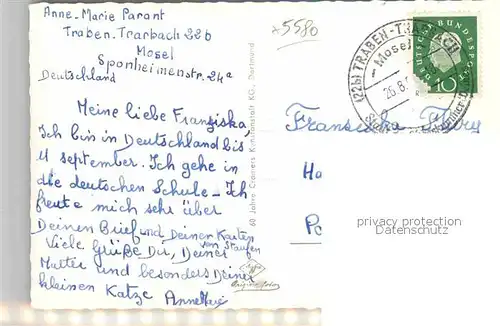 Anne-Marie Parant
Traben-Trarbach 22b
Mosel
Sponheimenstr. 24a
Deutschland
x5580
Meine liebe Franziska,
Ich bin in Deutschland bis
4 september. Ich gehe in
die deutschen Schule - Ich
freute mich sehr über
Deinen Brief und Deinen Karten
von Staufen
Viele Grüße Du, Deiner
Mutter und besonders Deiner
kleinen Katze AnneMarie
60 Jahre Cramers Kunstanstalt KG., Dortmund
(22b) TRABEN-TRARBACH
Mosel
26.8.
DEUTSCHE BUNDESPOST
10
Franziska
Ho
Po
privacy protection
Datenschutz